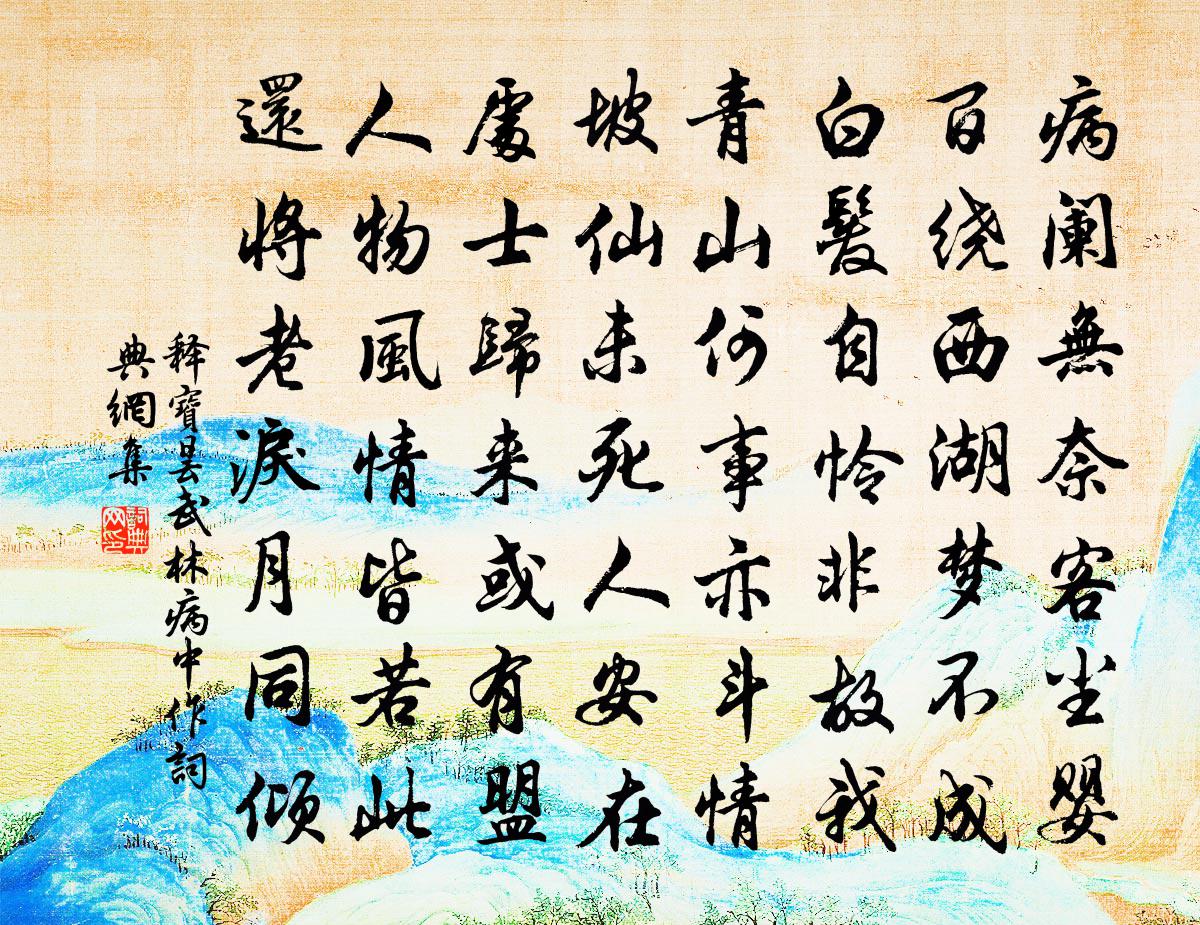 病阑無奈客尘婴
百绕西湖梦不成
白髮自怜非故我
青山何事亦斗情
坡仙未死人安在
處士歸来或有盟
人物風情皆若此
還将老淚月同倾
释寶昙武林病中作詞
典網集
詞典网印